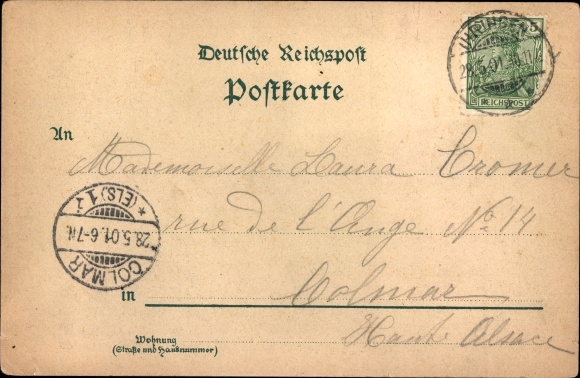 Deutsche Reichspost
Postkarte
IHRINGEN
28.5.01.
REICHSPOST
An
Mademoiselle Laura Cromer
rue de l'Ange No. 14
COLMAR
28.5.01.6-7N.
* (ELS) 1 *
in
Colmar
Haute Alsace
Wohnung
(Straße und Hausnummer)